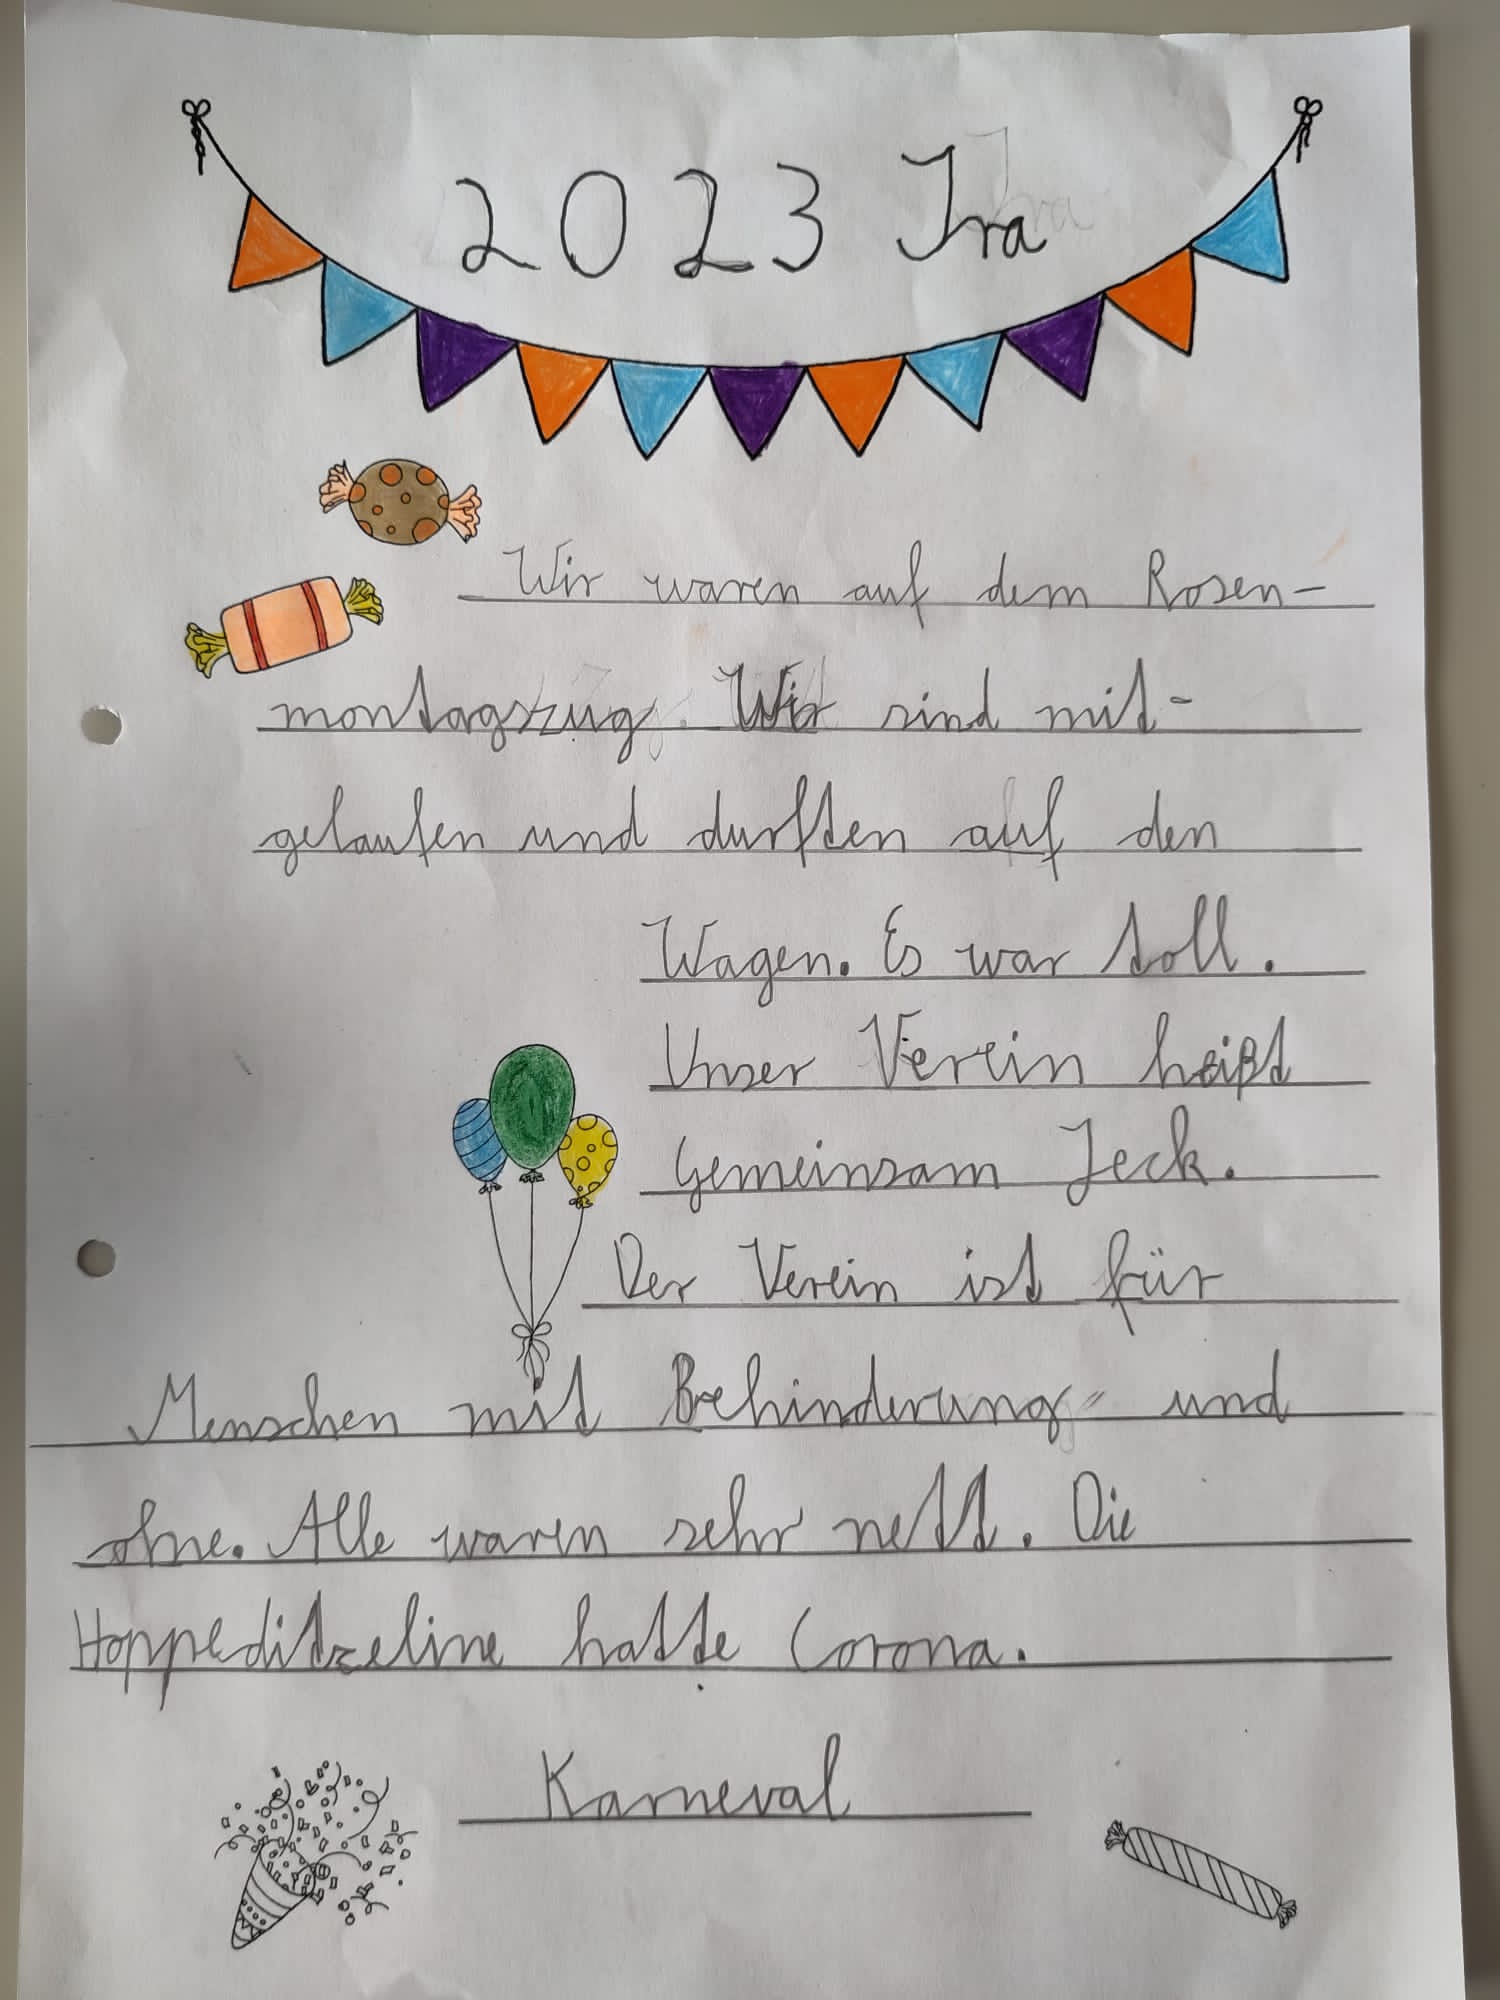 2023 Ira
Wir waren auf dem Rosen-
montagszug. Wir sind mit-
gelaufen und durften auf den
Wagen. Es war toll.
Unser Verein heißt
Gemeinsam Jeck.
Der Verein ist für
Menschen mit Behinderung und
ohne. Alle waren sehr nett. Die
Hoppeditzeline hatte Corona.
Karneval